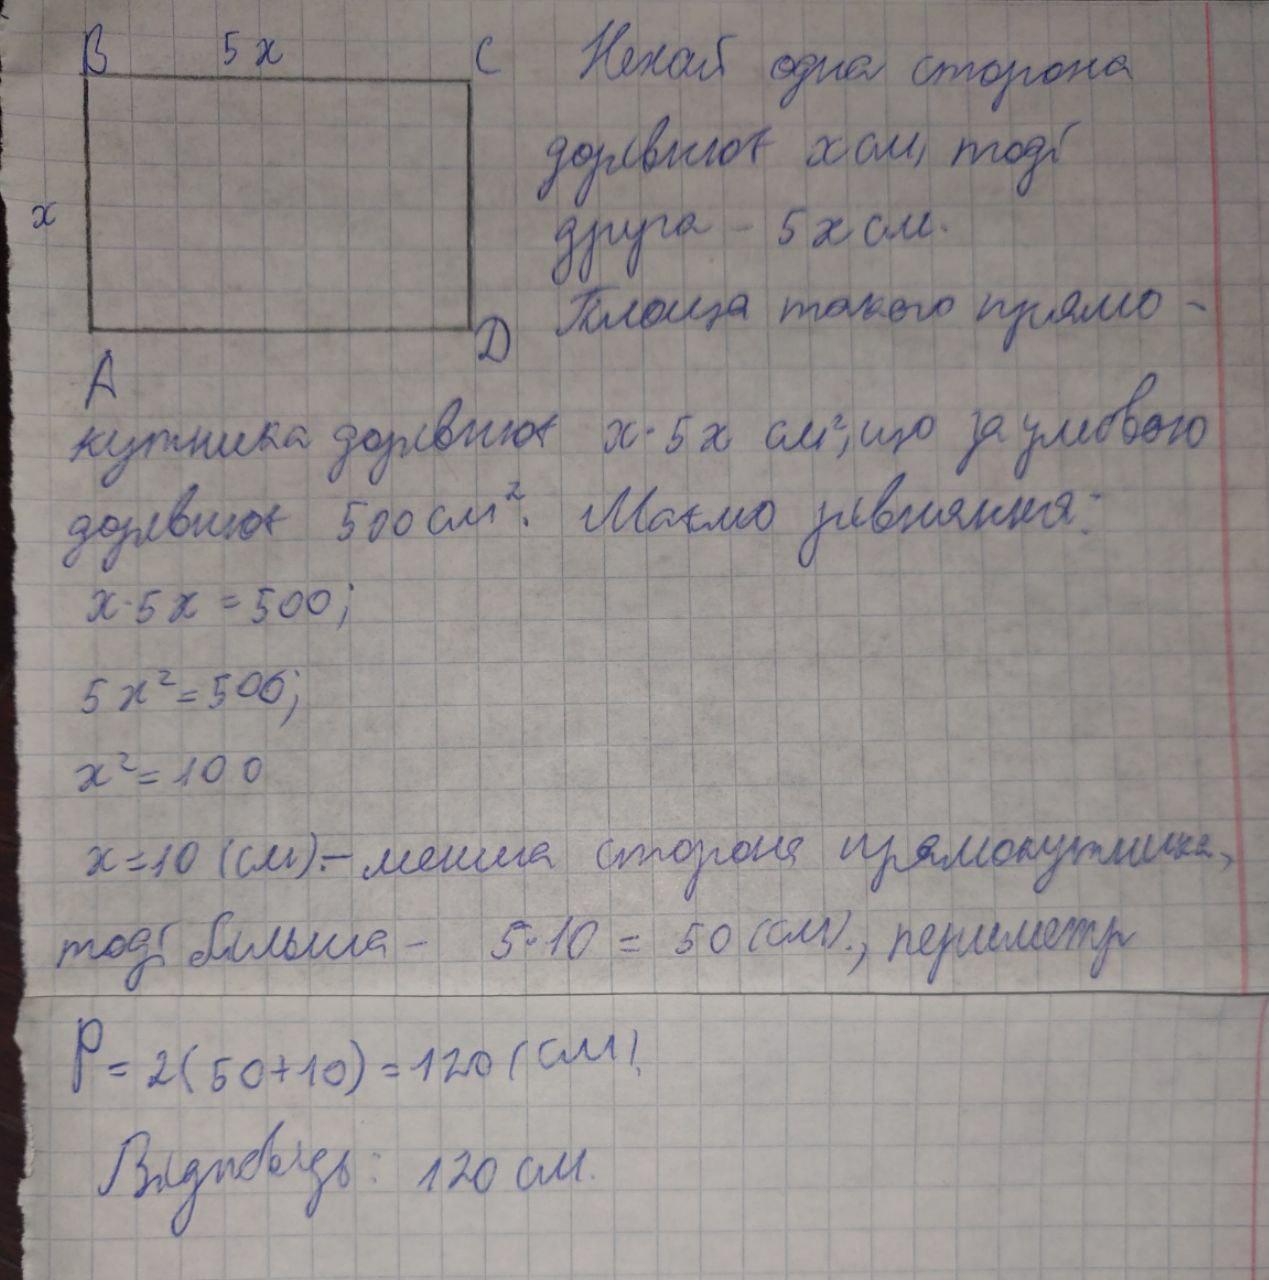 B 5x C
Нехай одна сторона
дорівнює x см, тоді
x
друга - 5x см.
Площа такого прямо-
D
A
кутника дорівнює x·5x см², що за умовою
дорівнює 500 см². Маємо рівняння:
x·5x = 500;
5x² = 500;
x² = 100
x = 10 (см). – менша сторона прямокутника,
тоді більша - 5·10 = 50 (см)., периметр
P = 2(50+10) = 120 (см).
Відповідь: 120 см.